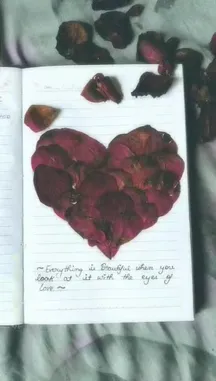 ~ Everything is Beautiful when you
look at it with the eyes of
love ~